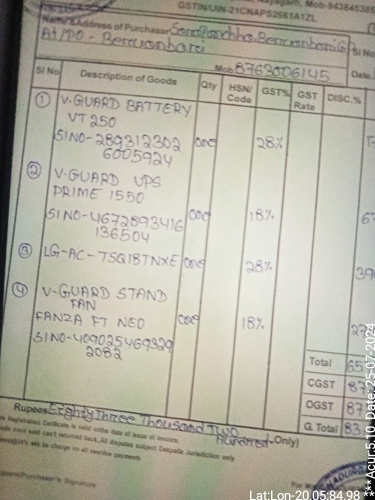 GSTIN/UIN-21CNAPS2661A1ZL
Name & Address of Purchaser
At/PO -
Mob: 8763006145
Date
Sl No Description of Goods Qty HSN/Code GST% GST Rate DISC.%
1 V-GUARD BATTERY
VT 250
SI NO-289312302 one 28%
6005924
2 V-GUARD UPS
PRIME 1550
SI NO-4672893416 one 18%
136504
3 LG-AC-TSQ18TNXE one 28%
4 V-GUARD STAND
FAN
FANZA FT NEO one 18%
SI NO-409025469329
2082
Total 65
CGST 87
OGST 87
G. Total 83
Rupees Eighty Three Thousand Two
Hundred Only)
Registration Certificate is valid on the date of issue of invoice.
once sold can't returned back. All disputes subject Daspalla Jurisdiction only.
will be charge on all overdue payments.
Signature
Lat:Lon-20.05:84.98
***Acur:5.10 Date:25-07-2024